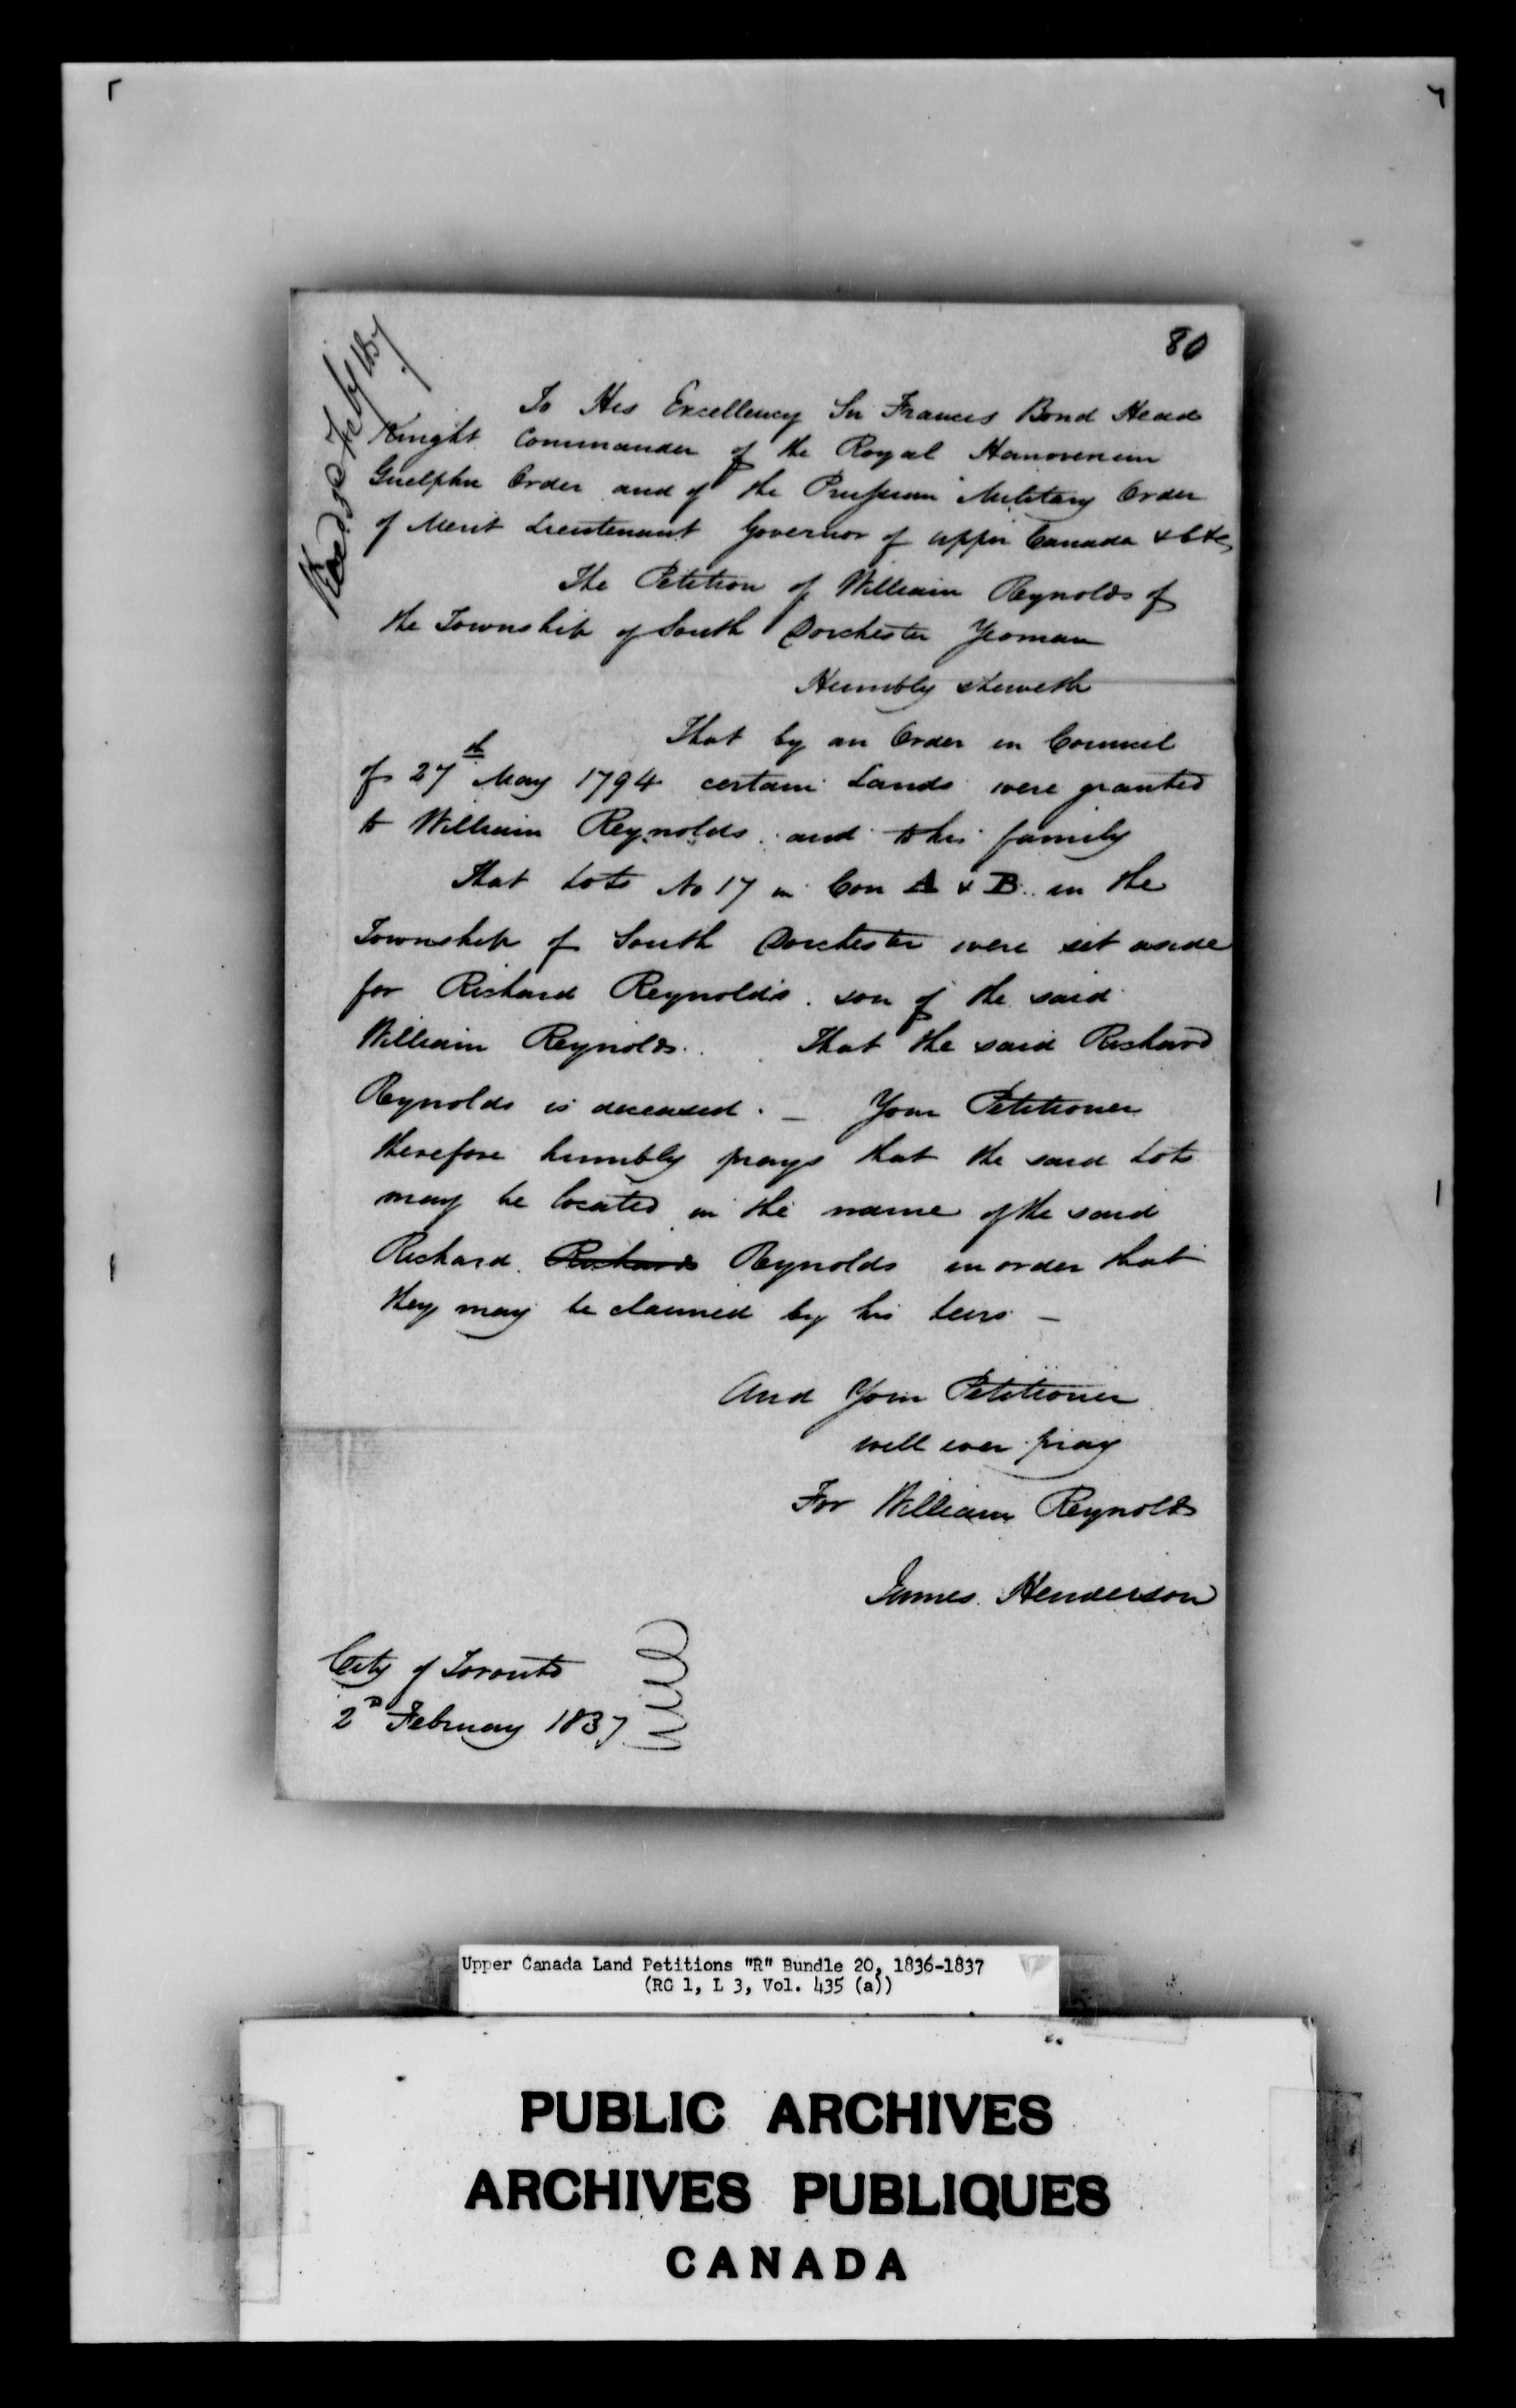 80
To His Excellency Sir Frances Bond Head
Knight Commander of the Royal Hanoverian
Guelphic Order and of the Prussian Military Order
of Merit Lieutenant Governor of upper Canada &c &c
The Petition of William Reynolds of
the Township of South Dorchester Yeoman
Humbly sheweth
That by an Order in Council
of 27th May 1794 certain Lands were granted
to William Reynolds and to his family
That Lots No 17 in Con A & B in the
Township of South Dorchester were set aside
for Richard Reynolds son of the said
William Reynolds. That the said Richard
Reynolds is deceased. — Your Petitioner
therefore humbly prays that the said Lots
may be located in the name of the said
Richard Richards Reynolds in order that
they may be claimed by his heirs —
And Your Petitioner
will ever pray
For William Reynolds
James Henderson
City of Toronto
2D February 1837
Upper Canada Land Petitions "R" Bundle 20, 1836-1837
(RG 1, L 3, Vol. 435 (a))
PUBLIC ARCHIVES
ARCHIVES PUBLIQUES
CANADA